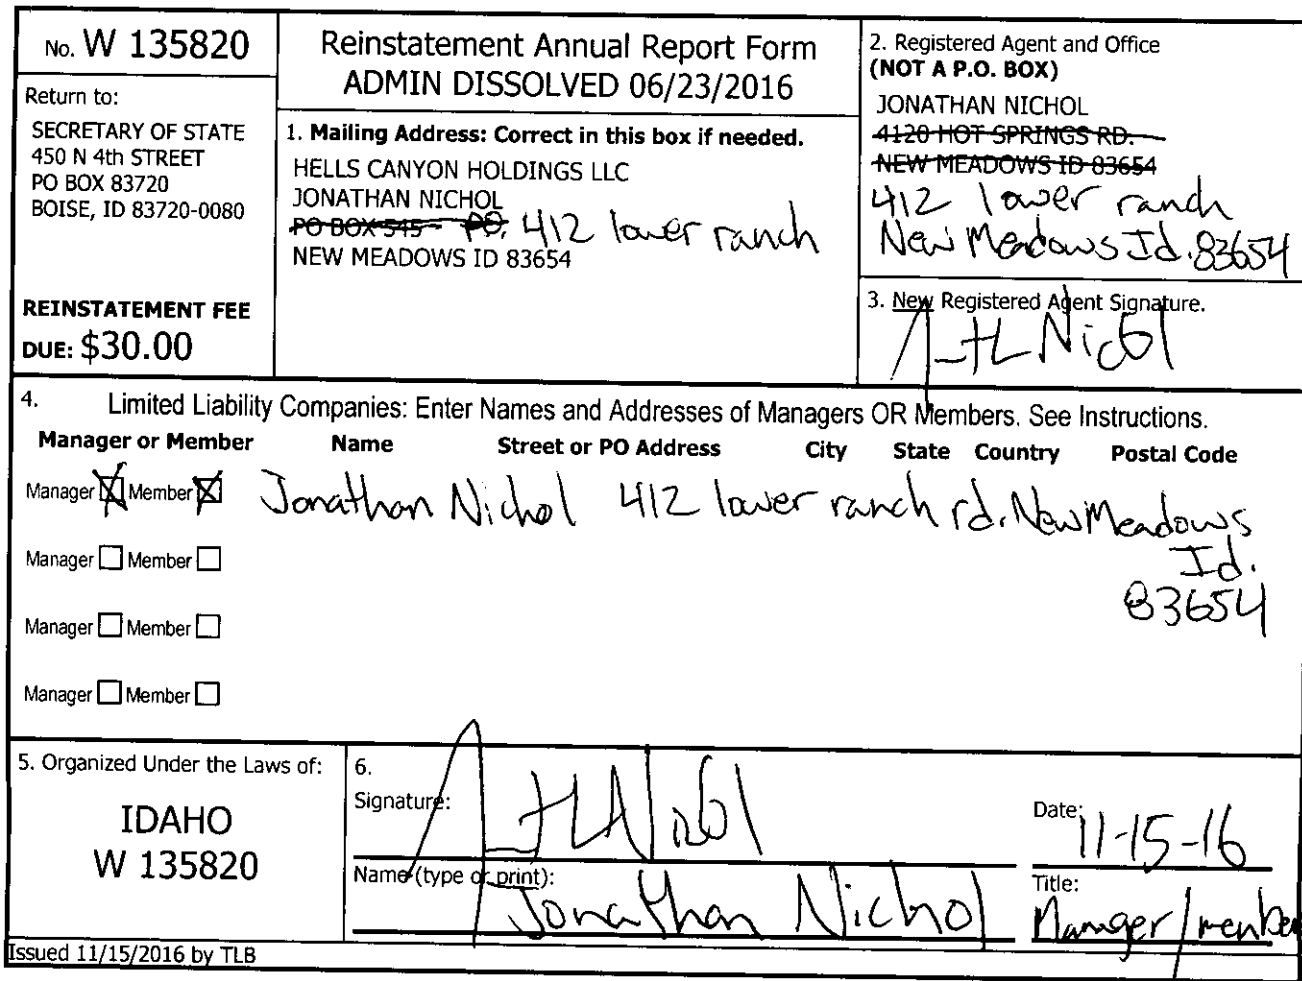 No. W 135820
Return to:
SECRETARY OF STATE
450 N 4th STREET
PO BOX 83720
BOISE, ID 83720-0080
REINSTATEMENT FEE
DUE: $30.00
Reinstatement Annual Report Form
ADMIN DISSOLVED 06/23/2016
1. Mailing Address: Correct in this box if needed.
HELLS CANYON HOLDINGS LLC
JONATHAN NICHOL
PO BOX 545 PO, 412 lower ranch
NEW MEADOWS ID 83654
2. Registered Agent and Office
(NOT A P.O. BOX)
JONATHAN NICHOL
4120 HOT SPRINGS RD.
NEW MEADOWS ID 83654
412 lower ranch
New Meadows Id. 83654
3. New Registered Agent Signature.
4. Limited Liability Companies: Enter Names and Addresses of Managers OR Members. See Instructions.
Manager or Member Name Street or PO Address City State Country Postal Code
Manager Member Jonathan Nichol 412 lower ranch rd. New Meadows
Id.
83654
Manager Member
Manager Member
Manager Member
5. Organized Under the Laws of:
IDAHO
W 135820
6.
Signature:
Date: 11-15-16
Name (type or print): Jonathan Nichol
Title: Manager/member
Issued 11/15/2016 by TLB